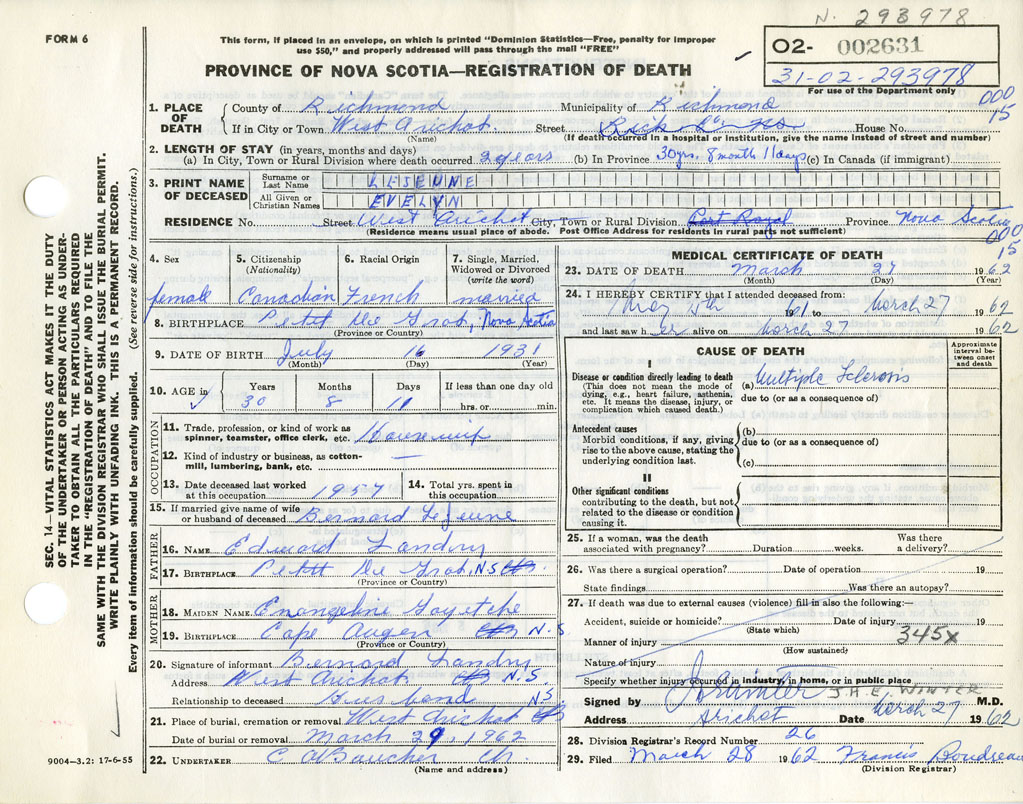 N. 293978
FORM 6
This form, if placed in an envelope, on which is printed "Dominion Statistics—Free, penalty for improper
use $50," and properly addressed will pass through the mail "FREE"
O2- 002631
31-02-293978
For use of the Department only
PROVINCE OF NOVA SCOTIA—REGISTRATION OF DEATH
000
15
1. PLACE OF DEATH
County of Richmond Municipality of Richmond
If in City or Town West Arichat. Street House No.
(Name) (If death occurred in a hospital or institution, give the name instead of street and number)
2. LENGTH OF STAY (in years, months and days)
(a) In City, Town or Rural Division where death occurred 2 years (b) In Province 30 yrs. 8 month 11 days (c) In Canada (if immigrant)
3. PRINT NAME OF DECEASED
Surname or Last Name LEJEUNE
All Given or Christian Names EVELYN
RESIDENCE No. Street West Arichat City, Town or Rural Division Port Royal Province Nova Scotia
(Residence means usual place of abode. Post Office Address for residents in rural parts not sufficient)
000
15
4. Sex 5. Citizenship (Nationality) 6. Racial Origin 7. Single, Married, Widowed or Divorced (write the word)
female Canadian French married
8. BIRTHPLACE Petit De Grat, Nova Scotia
(Province or Country)
9. DATE OF BIRTH July 16 1931
(Month) (Day) (Year)
10. AGE in Years Months Days If less than one day old
30 8 11 hrs. or min.
OCCUPATION
11. Trade, profession, or kind of work as
spinner, teamster, office clerk, etc. Housewife
12. Kind of industry or business, as cotton-
mill, lumbering, bank, etc. —
13. Date deceased last worked at this occupation 1957 14. Total yrs. spent in this occupation
15. If married give name of wife
or husband of deceased Bernard LeJeune
FATHER
16. NAME Edward Landry
17. BIRTHPLACE Petit De Grat, NS
(Province or Country)
MOTHER
18. MAIDEN NAME Evangeline Goyetche
19. BIRTHPLACE Cape Auget N.S
(Province or Country)
20. Signature of informant Bernard Landry
Address West Arichat N.S.
Relationship to deceased Husband NS
21. Place of burial, cremation or removal West Arichat
Date of burial or removal March 29, 1962
22. UNDERTAKER
(Name and address)
MEDICAL CERTIFICATE OF DEATH
23. DATE OF DEATH March 27 1962
(Month) (Day) (Year)
24. I HEREBY CERTIFY that I attended deceased from:
May 15th 1961 to March 27 1962
and last saw her alive on March 27 1962
CAUSE OF DEATH
Approximate interval between onset and death
I
Disease or condition directly leading to death
(This does not mean the mode of
dying, e.g., heart failure, asthenia,
etc. It means the disease, injury, or
complication which caused death.)
(a) Multiple Sclerosis
due to (or as a consequence of)
Antecedent causes
Morbid conditions, if any, giving
rise to the above cause, stating the
underlying condition last.
(b)
due to (or as a consequence of)
(c)
II
Other significant conditions
contributing to the death, but not
related to the disease or condition
causing it.
25. If a woman, was the death Was there
associated with pregnancy? Duration weeks. a delivery?
26. Was there a surgical operation? Date of operation 19
State findings Was there an autopsy?
27. If death was due to external causes (violence) fill in also the following:—
Accident, suicide or homicide? Date of injury 19
(State which)
345x
Manner of injury
(How sustained)
Nature of injury
Specify whether injury occurred in industry, in home, or in public place
Signed by J.H.E. WINTER M.D.
Address Arichat Date March 27 1962
28. Division Registrar's Record Number 26
29. Filed March 28 1962 Francis Boudreau
(Division Registrar)
SEC. 14—VITAL STATISTICS ACT MAKES IT THE DUTY
OF THE UNDERTAKER OR PERSON ACTING AS UNDER-
TAKER TO OBTAIN ALL THE PARTICULARS REQUIRED
IN THE "REGISTRATION OF DEATH" AND TO FILE THE
SAME WITH THE DIVISION REGISTRAR WHO SHALL ISSUE THE BURIAL PERMIT.
WRITE PLAINLY WITH UNFADING INK. THIS IS A PERMANENT RECORD.
Every item of information should be carefully supplied. (See reverse side for instructions.)
9004—3.2: 17-6-55